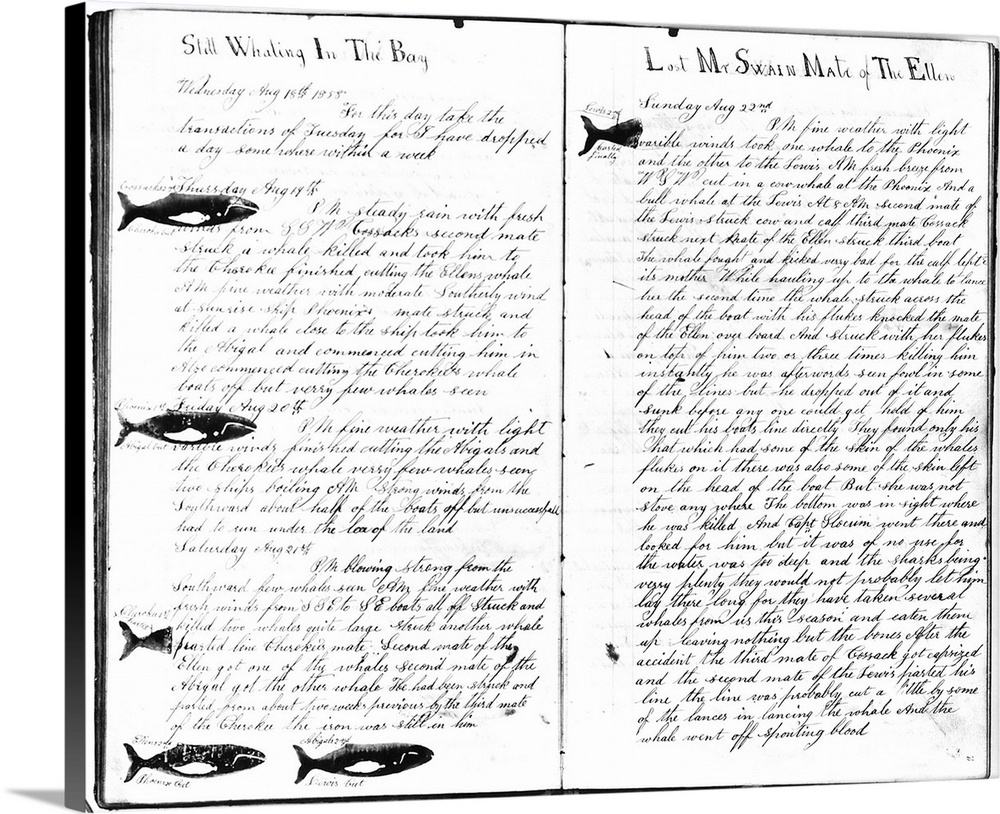 Still Whaling In The Bay
Wednesday Aug 18th 1858
For this day take the
transactions of Tuesday for I have dropped
a day some where within a week
Thursday Aug 19th
P.M. steady rain with fresh
winds from S S W Cossacks second mate
struck a whale killed and took him to
the Cherokee finished cutting the Ellens whale
AM fine weather with moderate Southerly wind
at sunrise ship Phoenix's mate struck and
killed a whale close to the ship took him to
the Abigal and commenced cutting him in
Also commenced cutting the Cherokee's whale
boats off but verry few whales seen
Friday Aug 20th
P.M fine weather with light
varible winds finished cutting the Abigals and
the Cherokee's whale verry few whales seen
two ships boiling AM strong winds from the
Southward about half of the boats off but unsuccessfull
had to run under the lea of the land
Saturday Aug 21st
P.M blowing strong from the
Southward few whales seen AM fine weather with
fresh winds from S S E to S E boats all off Struck and
killed two whales quite large struck another whale
parted line Cherokee's mate Second mate of the
Ellen got one of the whales Second mate of the
Abigal got the other whale He had been struck and
parted from about two weeks previous by the third mate
of the Cherokee the iron was still in him
Phoenix Cut
Abigal 2nd
Lewis Cut
Lost Mr Swain Mate of The Ellen
Sunday Aug 22nd
Lewis 2nd
Parted
finally
P.M fine weather with light
varible winds took one whale to the Phoenix
and the other to the Lewis AM fresh breze from
W S W cut in a cow whale at the Phoenix And a
bull whale at the Lewis At 8 AM second mate of
the Lewis struck cow and calf third mate Cossack
struck next Mate of the Ellen struck third boat
The whale fought and kicked verry bad for the calf left
its mother While hauling up to the whale to lance
her the second time the whale struck across the
head of the boat with his flukes knocked the mate
of the Ellen over board And struck with her flukes
on top of him two or three times killing him
instantly he was afterwords seen fowl in some
of the lines but he dropped out of it and
sunk before any one could get hold of him
they cut his boats line directly They found only his
hat which had some of the skin of the whales
flukes on it there was also some of the skin left
on the head of the boat But she was not
stove any where The bottom was in sight where
he was killed And Capt Slocum went there and
looked for him but it was of no use for
the water was too deep and the sharks being
verry plenty they would not probably let him
lay there long for they have taken several
whales from us this season and eaten them
up leaving nothing but the bones After the
accident the third mate of Cossack got capsized
and the second mate of the Lewis parted his
line the line was probably cut a little by some
of the lances in lancing the whale And the
whale went off spouting blood